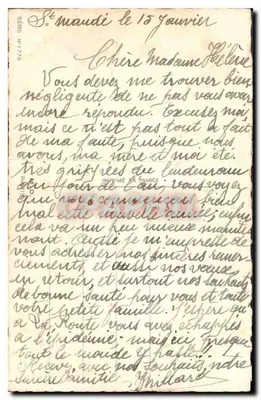 St mandé le 15 Janvier
SÉRIE N° 1775
Chère Madame Hélène
Vous devez me trouver bien
négligente de ne pas vous avoir
encore répondu. Excusez moi
mais ce n'est pas tout à fait
de ma faute, puisque nous
avons, ma mère et moi été
très grippées du lendemain
du Jour de l'an, vous voyez
que nous commençons bien
mal cette nouvelle année, enfin
cela va un peu mieux mainte
nant. Aussi je m'empresse de
vous adresser nos sincères remer
ciements, et aussi nos voeux
en retour, et surtout nos souhaits
de bonne santé pour vous et toute
votre petite famille. J'espère qu'
à La vous avez échappés
à l'épidémie; mais ici presque
tout le monde y passe.
Recevez avec nos souhaits, notre
sincère amitié.